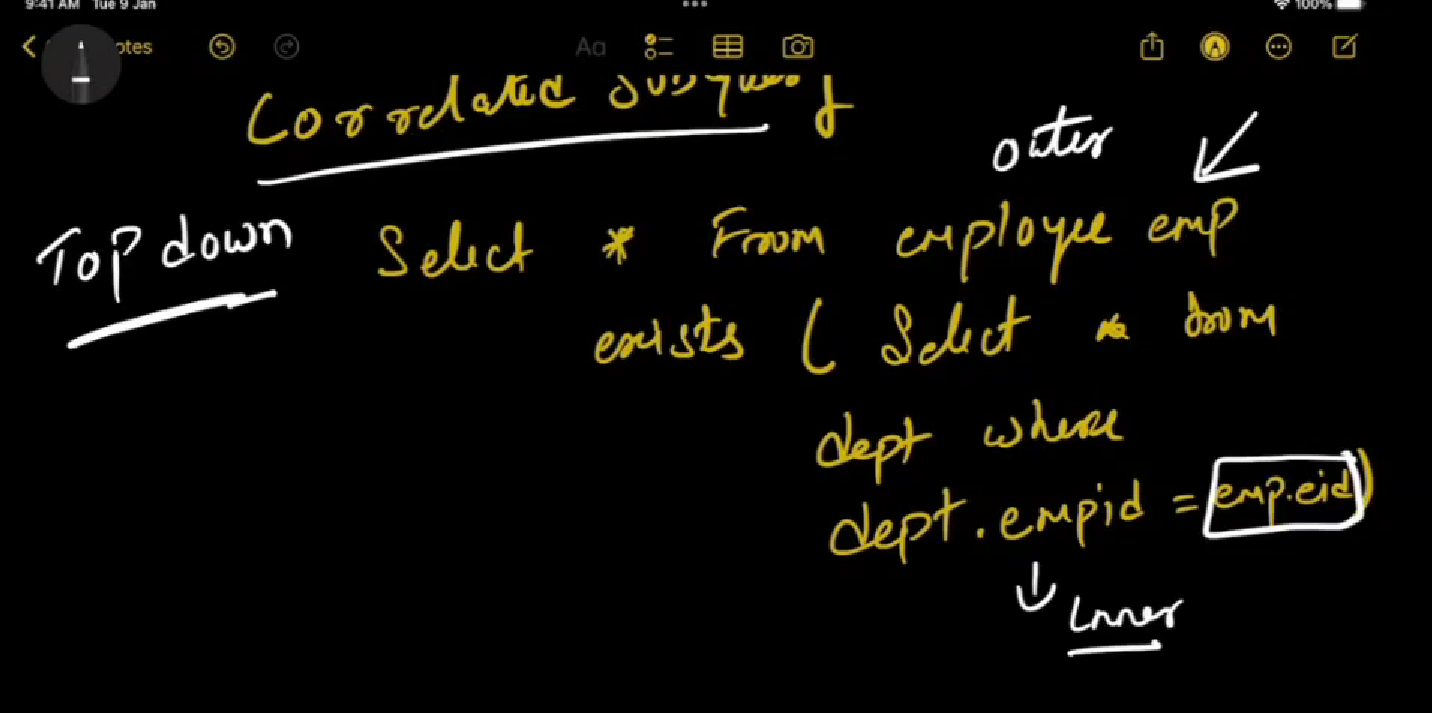 9:41 AM Tue 9 Jan
100%
otes
Aa
Correlated Subquery
outer
Top down Select * From employee emp
exists ( Select * from
dept where
dept.empid = emp.eid)
Inner